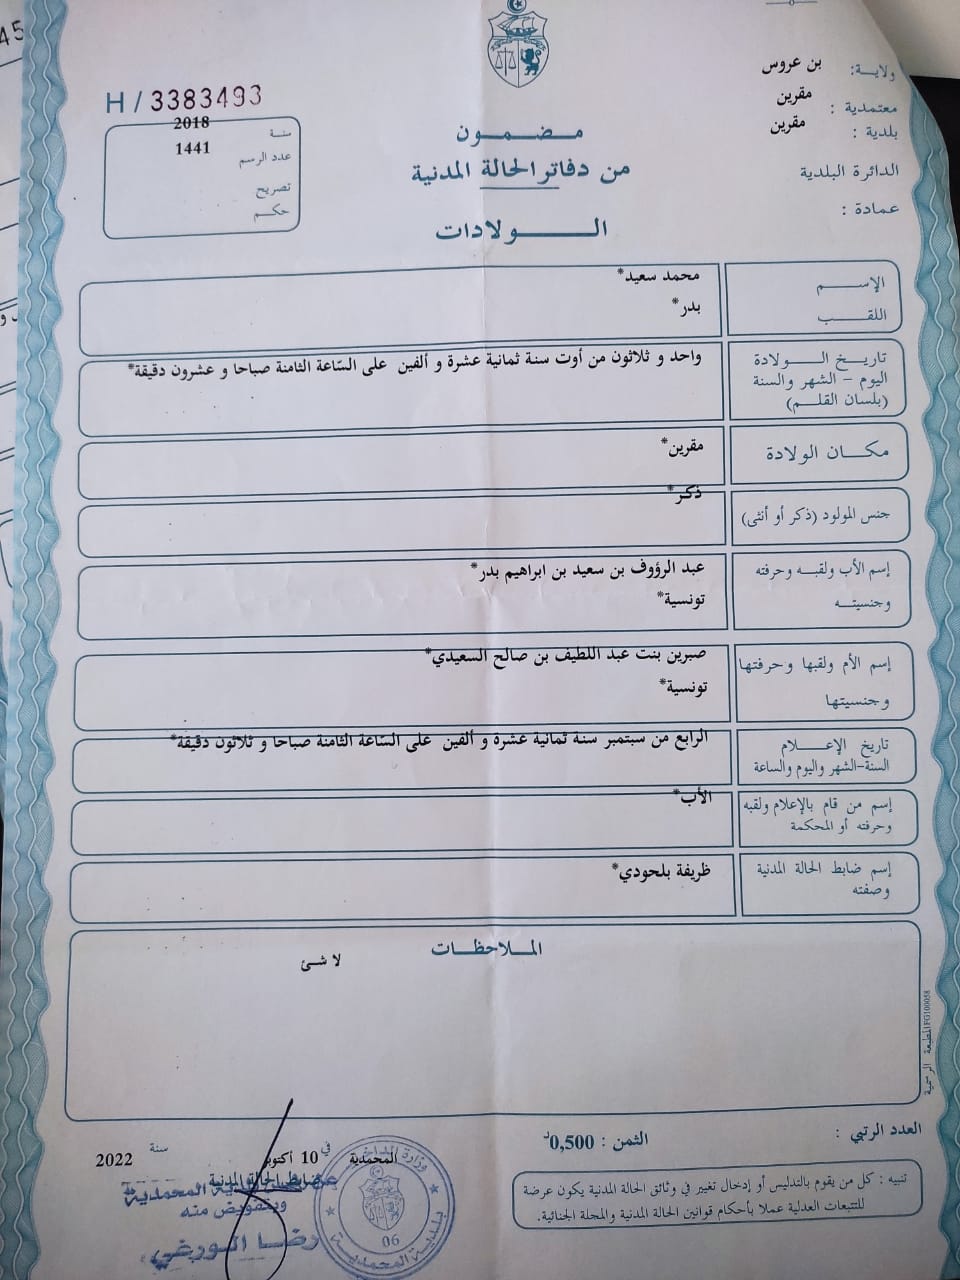 ولاية: بن عروس
معتمدية : مقرين
بلدية : مقرين
الدائرة البلدية
عمادة :
H / 3383493
سنة 2018
عدد الرسم 1441
تصريح
حكم
مضمون
من دفاتر الحالة المدنية
الولادات
الإسم محمد سعيد*
اللقب بدر*
تاريخ الولادة
اليوم - الشهر والسنة
(بلسان القلم)
واحد و ثلاثون من أوت سنة ثمانية عشرة و ألفين على السّاعة الثامنة صباحا و عشرون دقيقة*
مكان الولادة مقرين*
جنس المولود (ذكر أو أنثى) ذكر*
إسم الأب ولقبه وحرفته عبد الرؤوف بن سعيد بن ابراهيم بدر*
وجنسيته تونسية*
إسم الأم ولقبها وحرفتها صبرين بنت عبد اللطيف بن صالح السعيدي*
وجنسيتها تونسية*
تاريخ الإعلام
السنة-الشهر واليوم والساعة
الرابع من سبتمبر سنة ثمانية عشرة و ألفين على السّاعة الثامنة صباحا و ثلاثون دقيقة*
إسم من قام بالإعلام ولقبه
وحرفته أو المحكمة
الأب*
إسم ضابط الحالة المدنية
وصفته
ظريفة بلحودي*
الملاحظات
لا شئ
المطبعة الرسمية IFG100058
العدد الرتبي :
الثمن : 0,500د
المحمدية في 10 أكتوبر سنة 2022
ضابط الحالة المدنية
المحمدية
وبتفويض منه
رضا الورغي
وزارة الداخلية
06
بلدية المحمدية
تنبيه : كل من يقوم بالتدليس أو إدخال تغيير في وثائق الحالة المدنية يكون عرضة
للتتبعات العدلية عملا بأحكام قوانين الحالة المدنية والمجلة الجنائية.